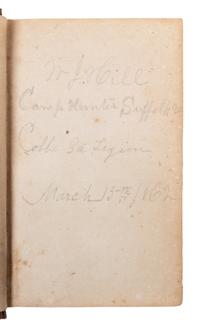 W J Hill
Camp Hunter Suffolk
Cobbs Ga Legion
March 13th /62